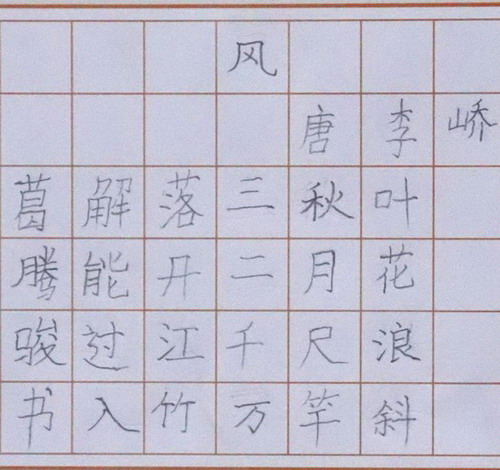 风
唐李峤
解落三秋叶
能开二月花
过江千尺浪
入竹万竿斜
葛腾骏书